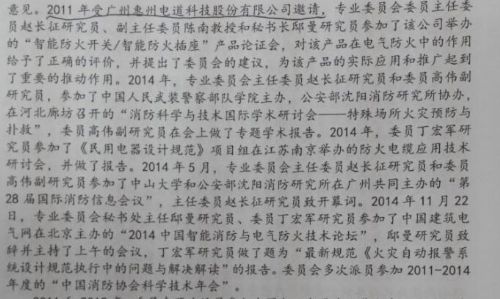 意见。2011 年受广州惠州电道科技股份有限公司邀请，专业委员会委员主任委
员赵长征研究员、副主任委员陈南教授和秘书长邸曼研究员参加了该公司举办
的“智能防火开关/智能防火插座”产品论证会，对该产品在电气防火中的作用
给予了正确的评价，并提出了委员会的建议，为该产品的实际应用和推广起到
了重要的推动作用。2014 年，专业委员会主任委员赵长征研究员和委员高伟副
研究员，参加了中国人民武装警察部队学院主办，公安部沈阳消防研究所协办，
在河北廊坊召开的“消防科学与技术国际学术研讨会——特殊场所火灾预防与
扑救”，委员高伟副研究员在会上做了专题学术报告。2014 年，委员丁宏军研
究员参加了《民用电器设计规范》项目组在江苏南京举办的防火电缆应用技术
研讨会，并做了报告。2014 年 5 月，专业委员会主任委员赵长征研究员和委员
高伟副研究员参加了中山大学和公安部沈阳消防研究所在广州共同主办的“第
28 届国际消防信息会议”，主任委员赵长征研究员致开幕词。2014 年 11 月 22
日，专业委员会秘书处主任邸曼研究员、委员丁宏军研究员参加了中国建筑电
气网在北京主办的“2014 中国智能消防与电气防火技术论坛”，邸曼研究员致
辞并主持了上午的会议，丁宏军研究员做了题为“最新规范《火灾自动报警系
统设计规范执行中的问题与解决解读”的报告。委员会多次派员参加 2011-2014
年度的“中国消防协会科学技术年会”。